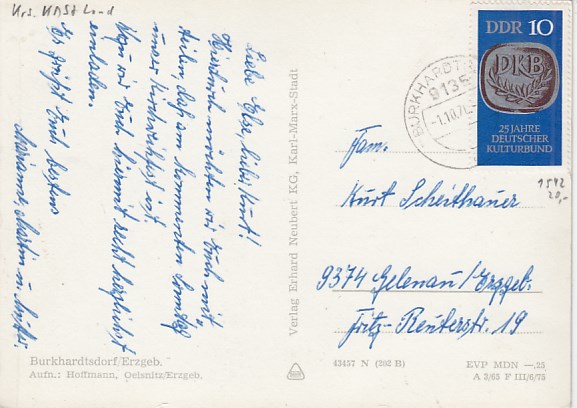 Krs. KMSt Land
Liebe Else, lieber Kurt!
Hierdurch möchten wir Euch mit-
teilen, daß am kommenden Sonntag
unser Kirchweihfest ist.
Wozu wir Euch hiermit recht herzlichst
einladen.
Es grüßt Euch bestens
Marianne, Martin u. Mutter
Verlag Erhard Neubert KG, Karl-Marx-Stadt
DDR 10
DKB
25 JAHRE
DEUTSCHER
KULTURBUND
BURKHARDT
9135
-1.10.70
1542
20,-
Fam.
Kurt Scheithauer
9374 Gelenau/Erzgeb.
Fritz-Reuterstr. 19
Burkhardtsdorf/Erzgeb.
Aufn.: Hoffmann, Oelsnitz/Erzgeb.
43457 N (202 B)
EVP MDN —,25
A 3/65 F III/6/75